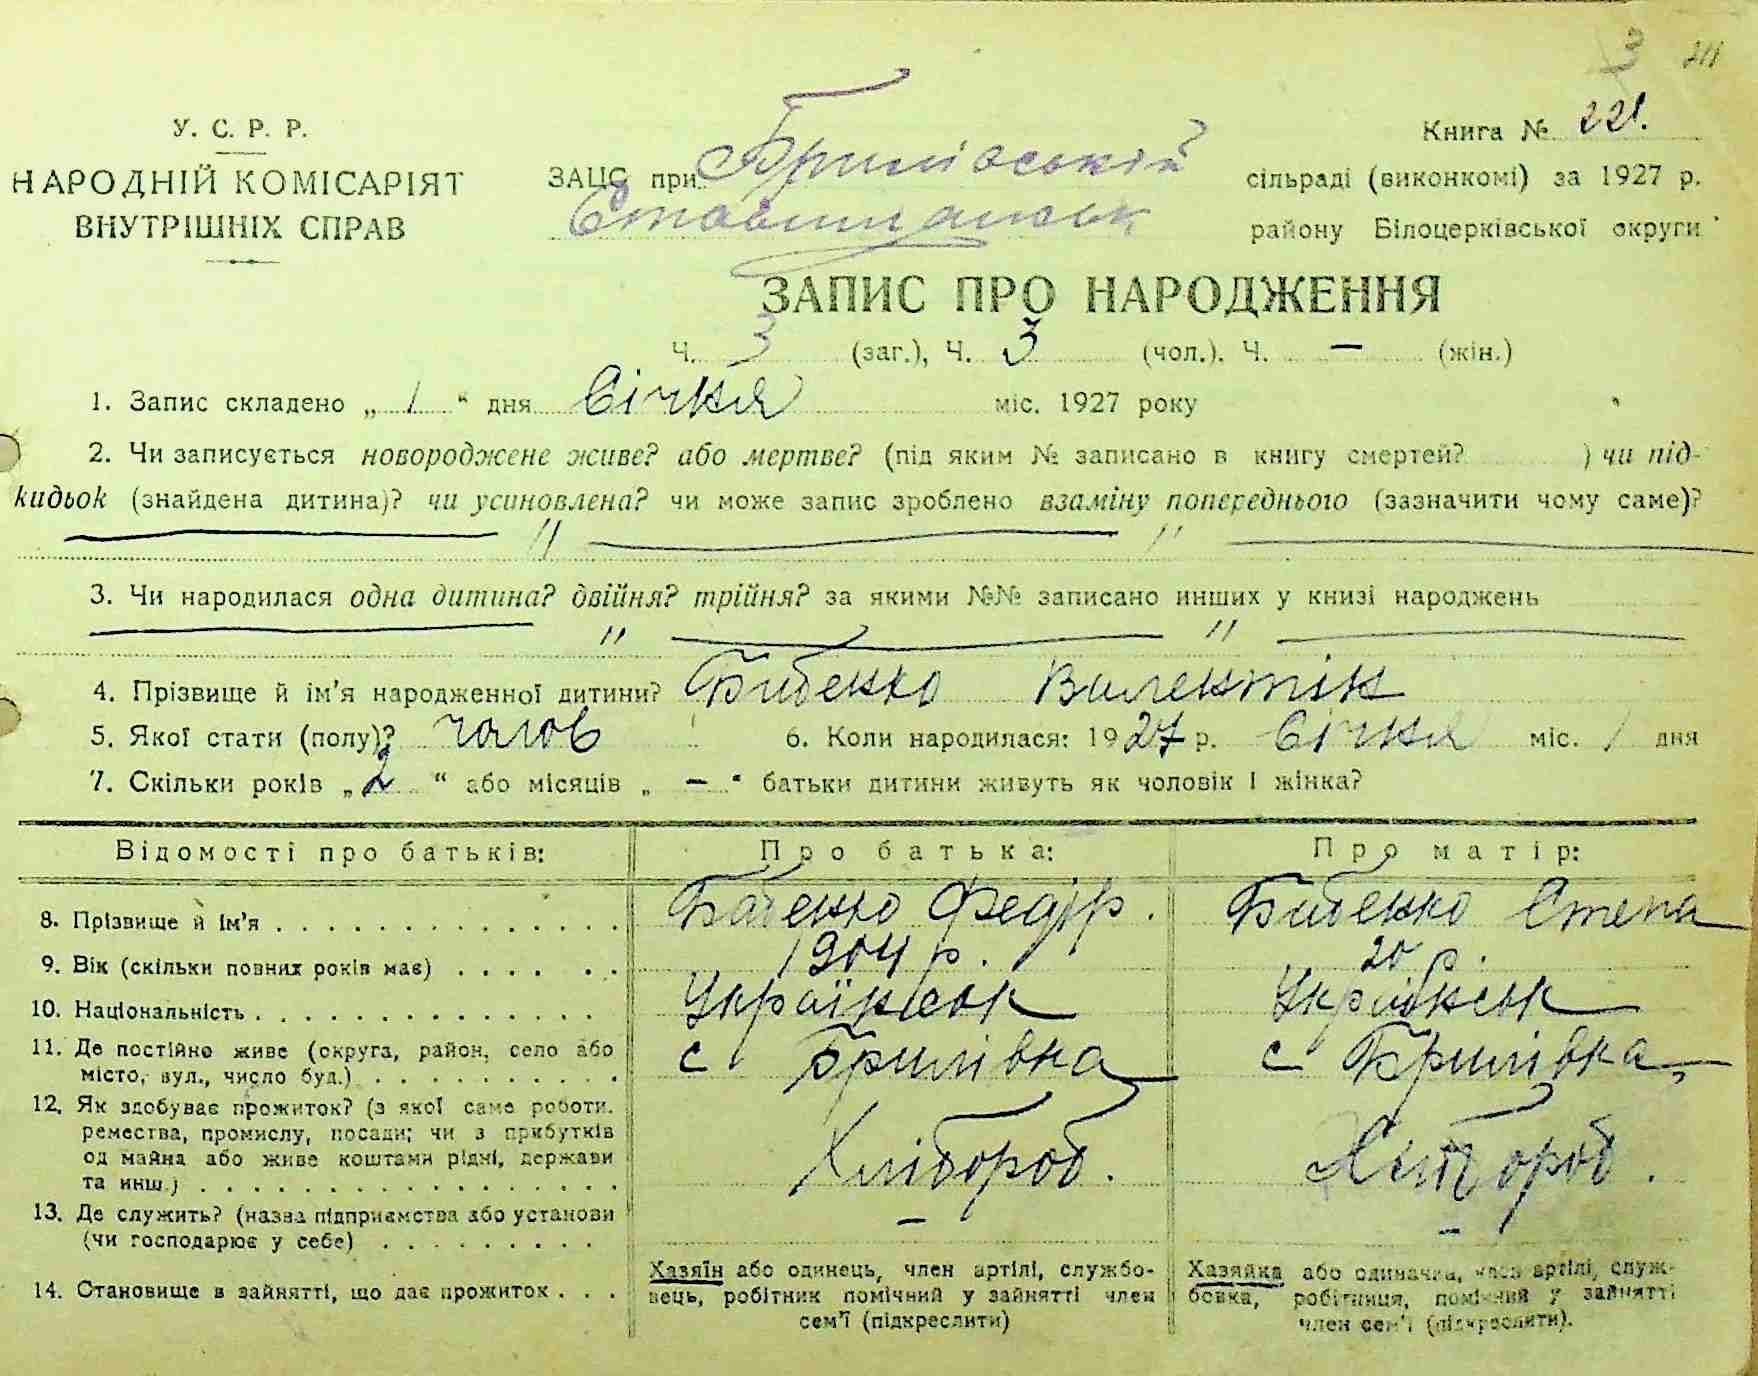 3
У. С. Р. Р.
НАРОДНІЙ КОМІСАРІЯТ
ВНУТРІШНІХ СПРАВ
Книга № 221.
ЗАЦС при Бриківській сільраді (виконкомі) за 1927 р.
Ставищанськ району Білоцерківської округи
ЗАПИС ПРО НАРОДЖЕННЯ
Ч. 3 (заг.), Ч. 3 (чол.). Ч. — (жін.)
1. Запис складено „ 1 “ дня Січня міс. 1927 року
2. Чи записується новороджене живе? або мертве? (під яким № записано в книгу смертей? ) чи під-
кидьок (знайдена дитина)? чи усиновлена? чи може запис зроблено взаміну попереднього (зазначити чому саме)?
— " — " —
3. Чи народилася одна дитина? двійня? трійня? за якими №№ записано инших у книзі народжень
— " — " —
4. Прізвище й ім'я народженної дитини? Бабенко Валентін
5. Якої стати (полу)? чолов 6. Коли народилася: 1927 р. Січня міс. 1 дня
7. Скільки років „ 2 “ або місяців „ — “ батьки дитини живуть як чоловік і жінка?
Відомості про батьків: Про батька: Про матір:
8. Прізвище й ім'я Бабенко Федір. Бабенко Степа
9. Вік (скільки повних років має) 1904 р. 20 р.
10. Національність Українськ Українськ
11. Де постійно живе (округа, район, село або
місто, вул., число буд.) с Брилівка с Брилівка
12. Як здобуває прожиток? (з якої саме роботи,
ремества, промислу, посади; чи з прибутків
од майна або живе коштами рідні, держави
та инш.) Хлібороб. Хлібороб.
13. Де служить? (назва підприємства або установи
(чи господарює у себе) — —
14. Становище в зайнятті, що дає прожиток
Хазяїн або одинець, член артілі, службо-
вець, робітник помічний у зайнятті член
сем'ї (підкреслити)
Хазяйка або одиначка, член артілі, служ-
бовка, робітниця, помічний у зайнятті
член сем'ї (підкреслити).